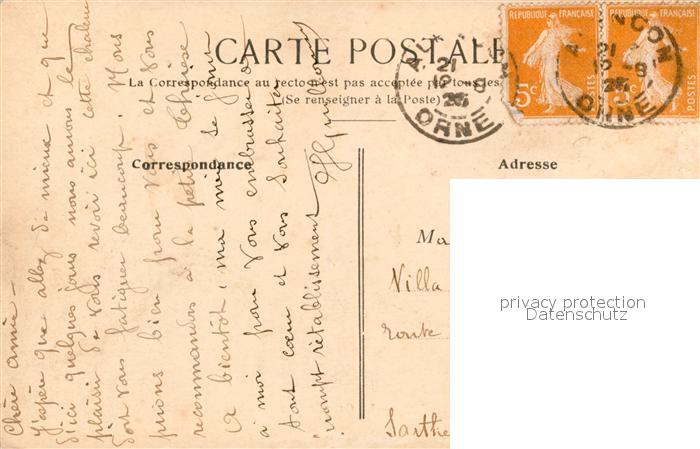 CARTE POSTALE
La Correspondance au recto n'est pas acceptée par tous les
(Se renseigner à la Poste)
RÉPUBLIQUE FRANÇAISE
POSTES
5c
RÉPUBLIQUE FRANÇAISE
POSTES
5c
21
ORNE
ALENÇON
21
ORNE
Correspondance
Adresse
Chère amie –
J'espère que allez de mieux et que
d'ici quelques jours nous aurons le
plaisir de vous revoir ici cette chaleur
doit vous fatiguer beaucoup. Nous
prions bien pour vous et vous
recommandons à la petite Thérèse
A bientôt, ma mère se joint
à moi pour vous embrasser de
tout cœur et vous souhaiter
prompt rétablissement
Ma
Villa
route
Sarthe
privacy protection
Datenschutz